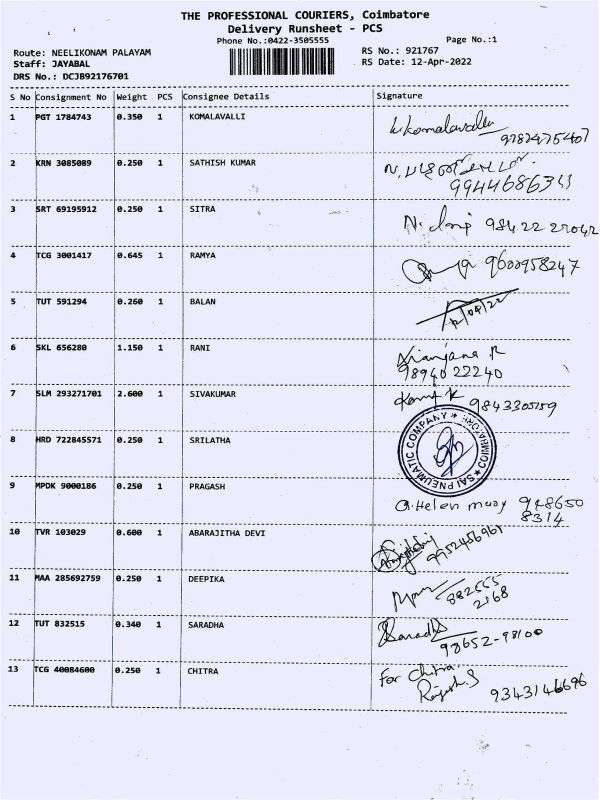 THE PROFESSIONAL COURIERS, Coimbatore
Delivery Runsheet - PCS
Phone No.:0422-3505555
Page No.:1
Route: NEELIKONAM PALAYAM
RS No.: 921767
Staff: JAYABAL
RS Date: 12-Apr-2022
DRS No.: DCJB92176701
S No Consignment No Weight PCS Consignee Details Signature
1 PGT 1784743 0.350 1 KOMALAVALLI K.Komalavalli
2 KRN 3085089 0.250 1 SATHISH KUMAR
3 SRT 69195912 0.250 1 SITRA
4 TCG 3001417 0.645 1 RAMYA 9600958247
5 TUT 591294 0.260 1 BALAN 12/04/22
6 SKL 656280 1.150 1 RANI Niranjana R
9894022240
7 SLM 293271701 2.600 1 SIVAKUMAR 9843305159
8 HRD 722845571 0.250 1 SRILATHA SAI PNEUMATIC COMPANY ★ COIMBATORE ★
9 MPDK 9000186 0.250 1 PRAGASH Helen mary 948650
8314
10 TVR 103029 0.600 1 ABARAJITHA DEVI 9952456961
11 MAA 285692759 0.250 1 DEEPIKA 882555
2168
12 TUT 832515 0.340 1 SARADHA Saradha
98652-98100
13 TCG 40084600 0.250 1 CHITRA for Chitra.
Rajesh.S 9343146696